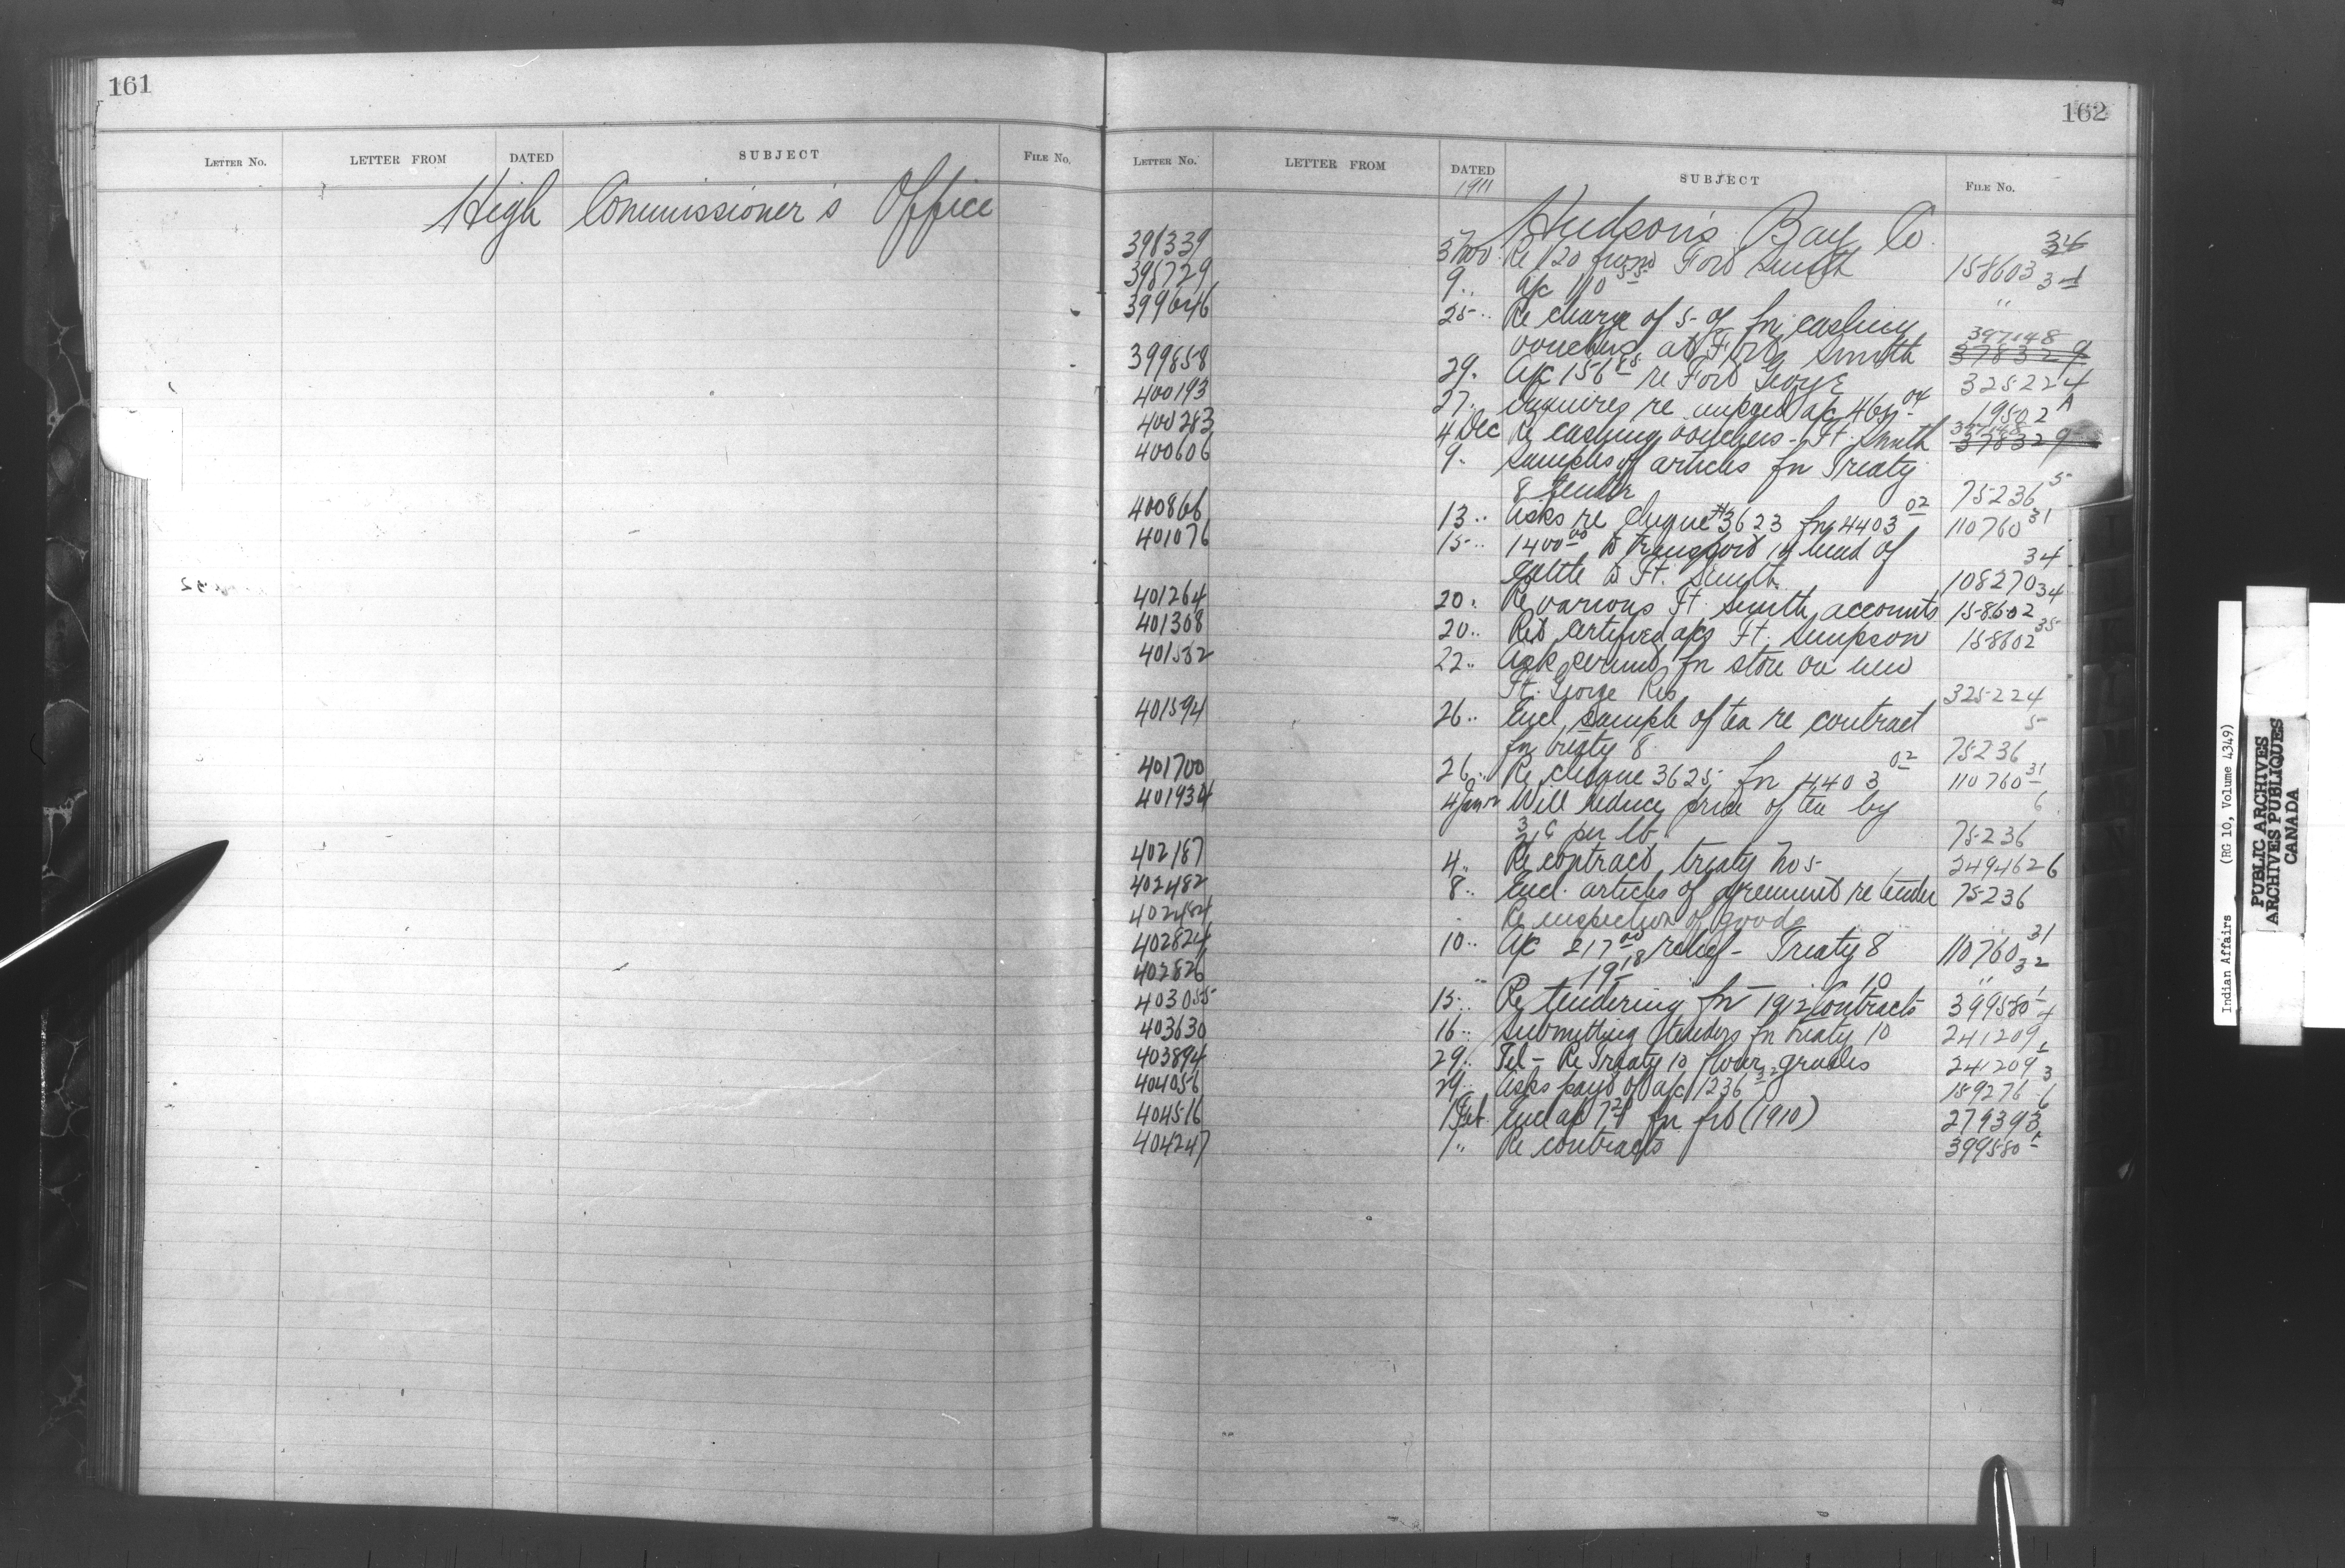 161
LETTER No. LETTER FROM DATED SUBJECT FILE No.
High Commissioner's Office
162
LETTER No. LETTER FROM DATED SUBJECT FILE No.
1911
Hudson's Bay Co.
398339 3 Nov Re 120 from Fort Smith 158603 34
398729 9 .. a/c 110 55 34
399646 25 .. Re charge of 5 % for cashing "
vouchers at Fort Smith 397148 378329
399858 29 . a/c 156 85 re Fort George 325224
400193 27 . Enquires re unpaid a/c 19502 A
400283 4 Dec Re cashing vouchers - Ft. Smith 397148 378329
400606 9 . Samples of articles for Treaty
8 tender 75236 5
400866 13 .. Asks re cheque #3623 for 4403 02 110760 31
401076 15 .. 1400 00 to transport 14 head of
cattle to Ft. Smith 108270 34
401264 20 . Re various Ft. Smith accounts 158602 34
401308 20 .. Ret certified a/cs Ft. Simpson 158602 35
401532 22 .. Ask permit for store on new
Ft. George Res 325224
401594 26 .. Encl sample of tea re contract
for treaty 8 75236 5
401700 26 .. Re cheque 3625 for 4403 02 110760 31
401934 4 Jan Will reduce price of tea by
per lb. 75236 6
402187 4 .. Re contract, treaty No 5 249462-6
402482 8 .. Encl. articles of agreement re tender 75236
402484 Re inspection of goods
402824 10 .. a/c 217 00 relief - Treaty 8 110760 31
402826 .. 19 18 10 " 32
403055 15 .. Re tendering for 1912 Contracts 399580-1
403630 16 .. Submitting tenders for treaty 10 241209 4
403894 29 .. Tel - Re Treaty 10 flour grades 241209
404056 29 .. Asks payt of a/c 1236 32 159276 3
404516 1 Feb. Encl a/c for frt (1910) 279393 6
404247 1 .. Re contracts 399580-1
Indian Affairs (RG 10, Volume 4349)
PUBLIC ARCHIVES
ARCHIVES PUBLIQUES
CANADA